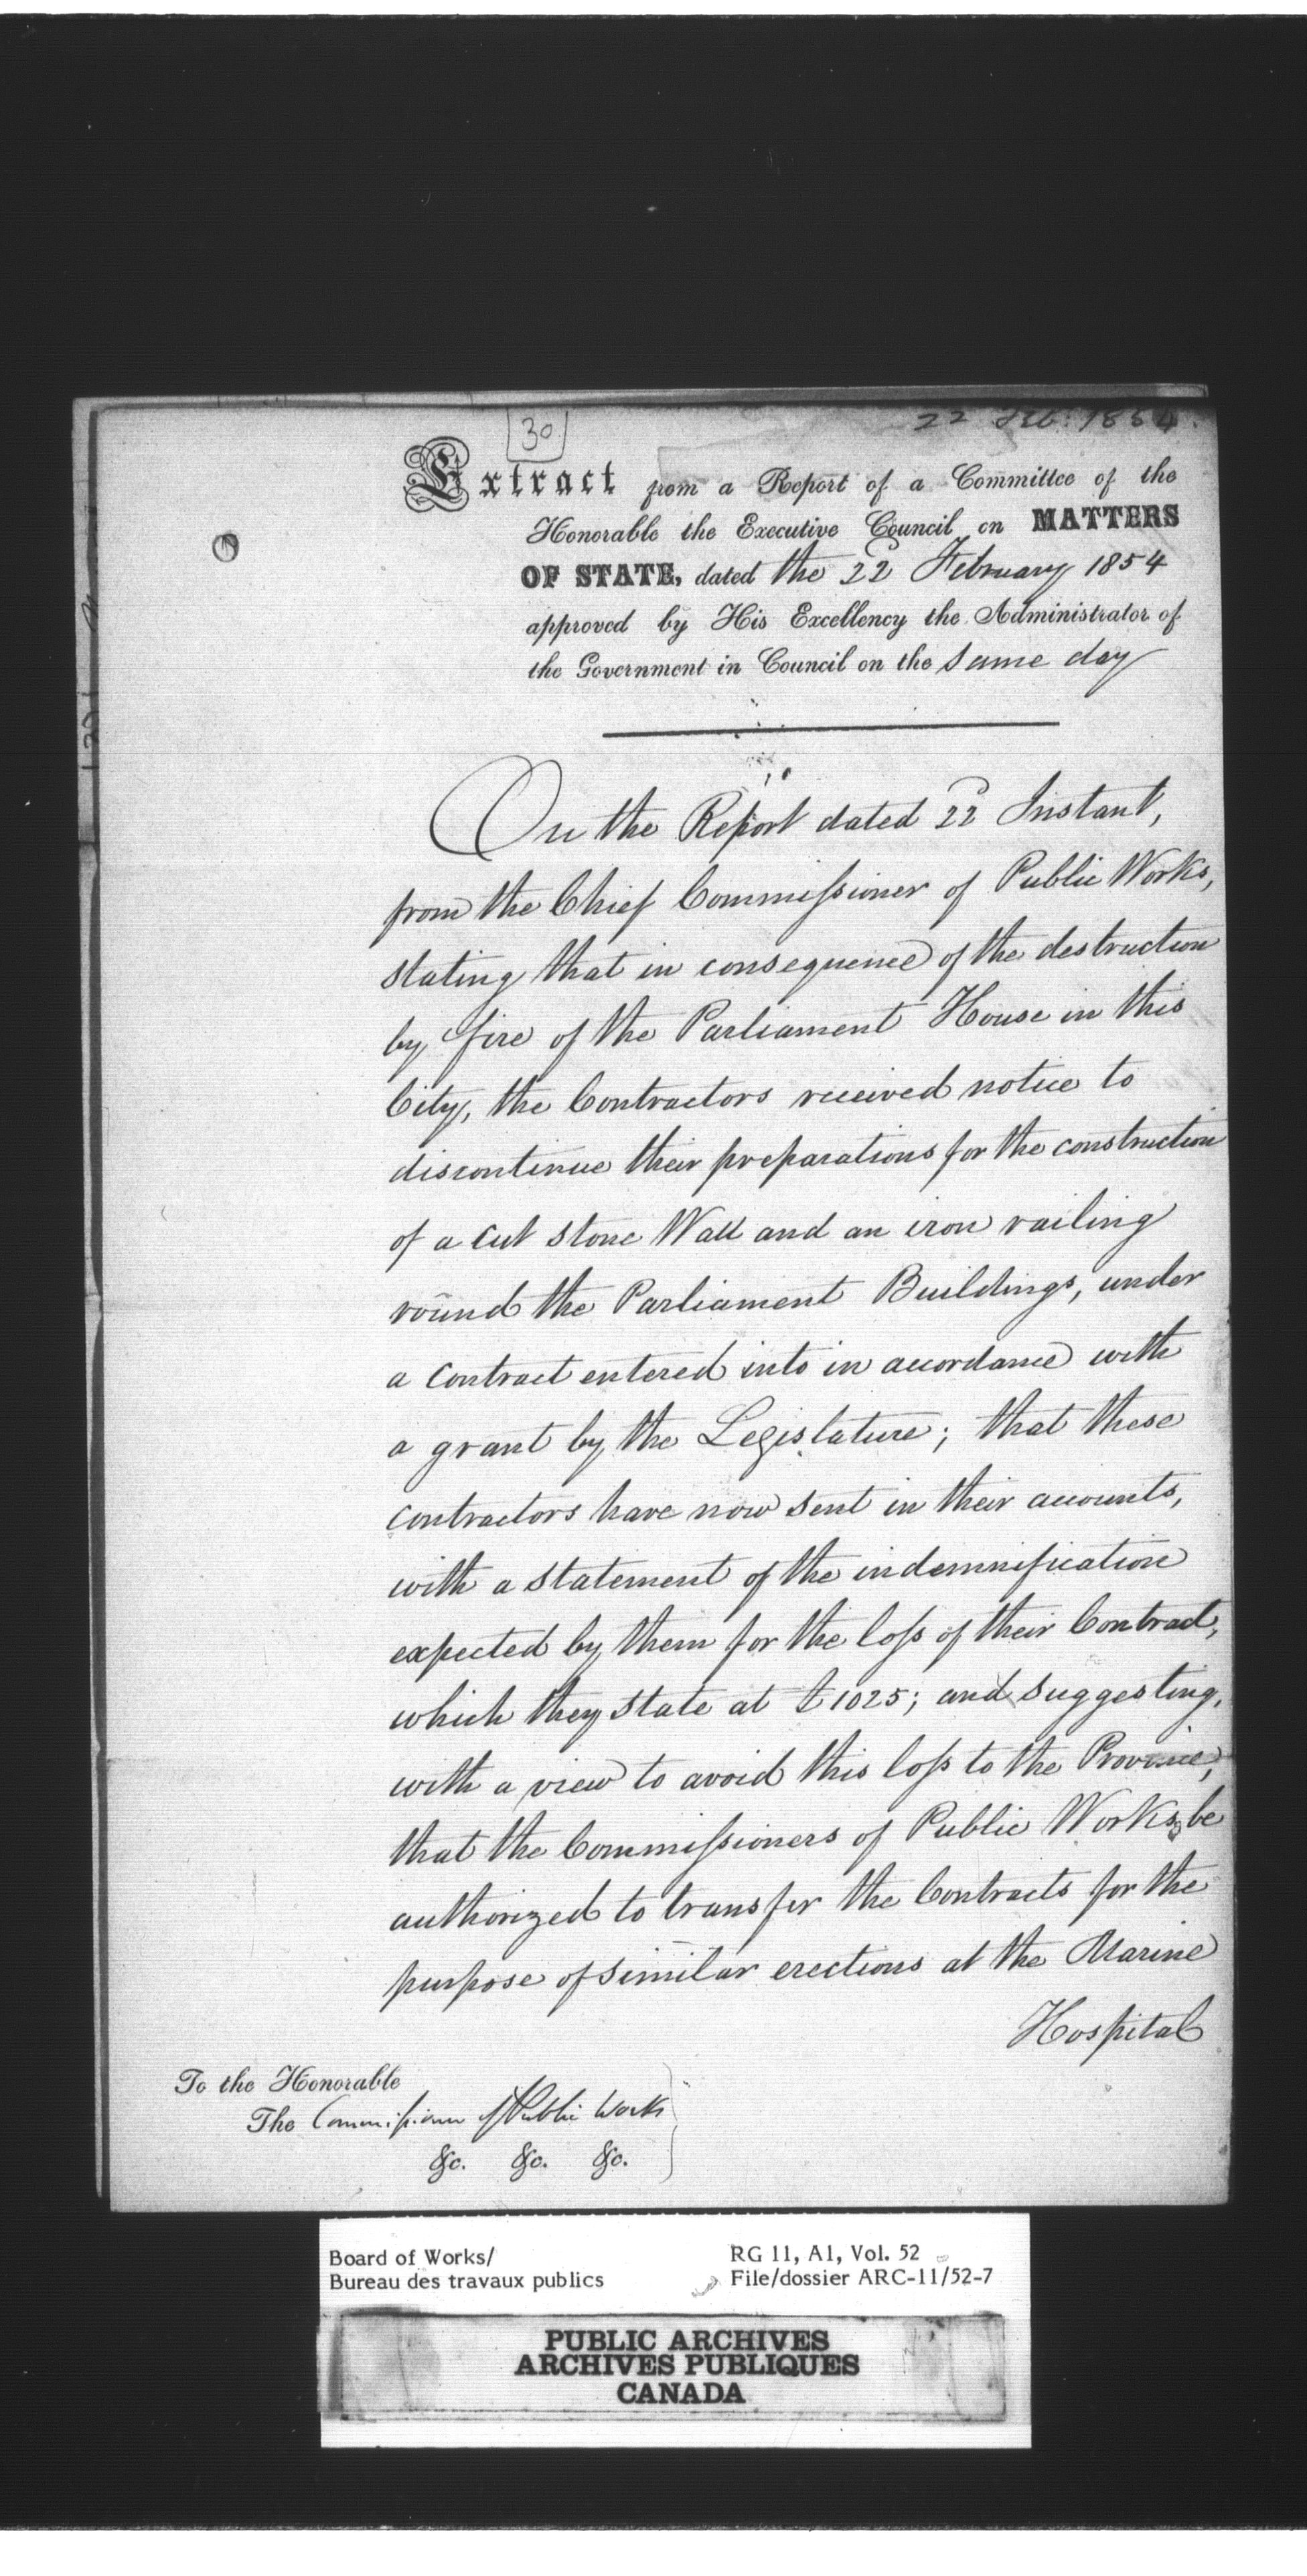 30
22 Feb: 1854.
Extract from a Report of a Committee of the
Honorable the Executive Council on MATTERS
OF STATE, dated the 22 February 1854
approved by His Excellency the Administrator of
the Government in Council on the same day
On the Report dated 22 Instant,
from the Chief Commissioner of Public Works,
stating that in consequence of the destruction
by fire of the Parliament House in this
City, the Contractors received notice to
discontinue their preparations for the construction
of a cut stone Wall and an iron railing
round the Parliament Buildings, under
a contract entered into in accordance with
a grant by the Legislature; that these
contractors have now sent in their accounts,
with a statement of the indemnification
expected by them for the loss of their Contract,
which they state at £1025; and suggesting,
with a view to avoid this loss to the Province,
that the Commissioners of Public Works, be
authorized to transfer the Contracts for the
purpose of similar erections at the Marine
Hospital
To the Honorable
The Commissioners of Public Works
&c. &c. &c.
Board of Works/
Bureau des travaux publics
RG 11, A1, Vol. 52
File/dossier ARC-11/52-7
PUBLIC ARCHIVES
ARCHIVES PUBLIQUES
CANADA